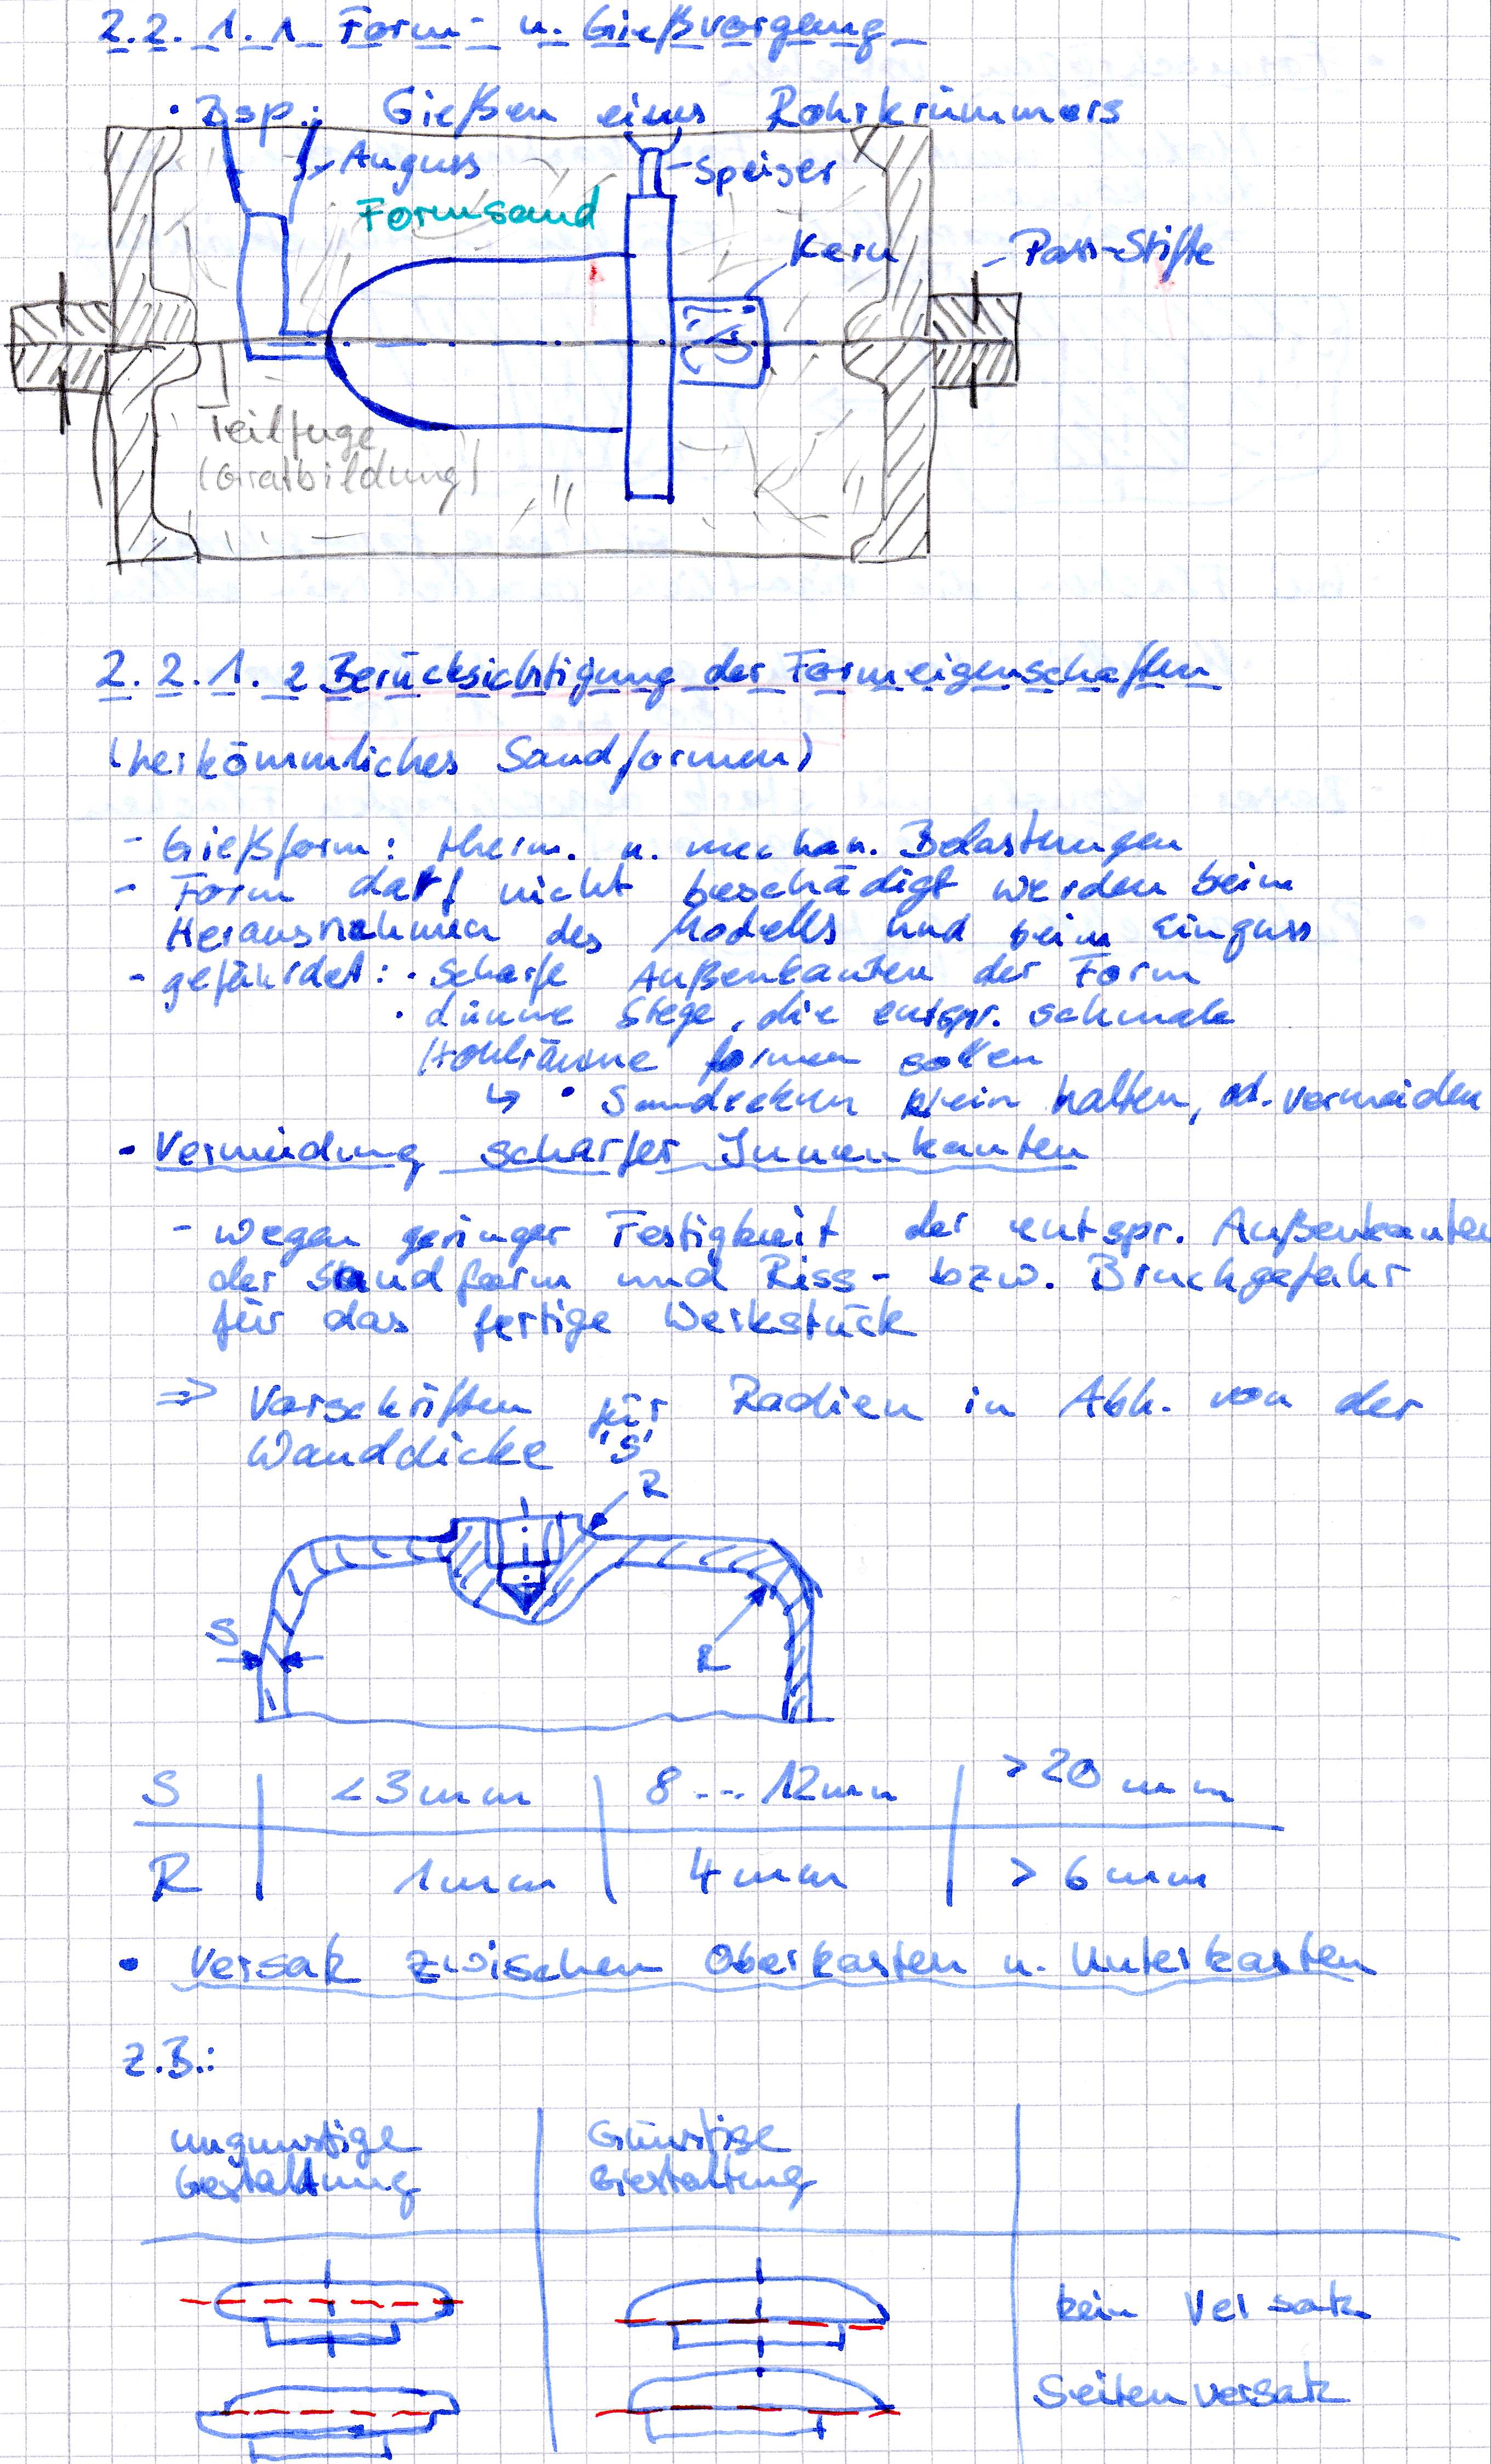 2.2.1.1 Form- u. Gießvorgang
· Bsp.: Gießen eines Rohrkrümmers
Anguss
Speiser
Formsand
Kern
Pass-Stifte
Teilfuge
(Gratbildung)
2.2.1.2 Berücksichtigung der Formeigenschaften
(herkömmliches Sandformen)
- Gießform: therm. u. mechan. Belastungen
- Form darf nicht beschädigt werden beim
Herausnehmen des Modells und beim Einguss
- gefährdet: · Scharfe Außenkanten der Form
· dünne Stege, die entspr. schmale
Hohlräume formen sollen
↳ · Sandecken klein halten, od. vermeiden
· Vermeidung scharfer Innenkanten
- wegen geringer Festigkeit der entspr. Außenkanten
der Sandform und Riss- bzw. Bruchgefahr
für das fertige Werkstück
⇒ Vorschriften für Radien in Abh. von der
Wanddicke 'S'
R
S
R
S | <3mm | 8...12mm | >20mm
R | 1mm | 4mm | >6mm
· Versatz zwischen Oberkasten u. Unterkasten
z.B.:
ungünstige Günstige
Gestaltung Gestaltung
kein Versatz
Seitenversatz